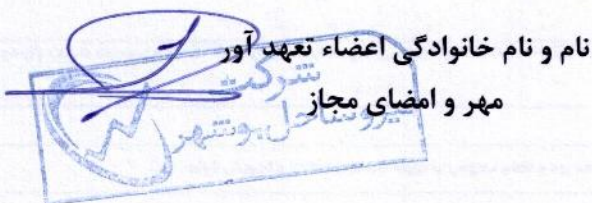 نام و نام خانوادگی اعضاء تعهد آور
مهر و امضای مجاز
شرکت
نیرو ساحل بوشهر